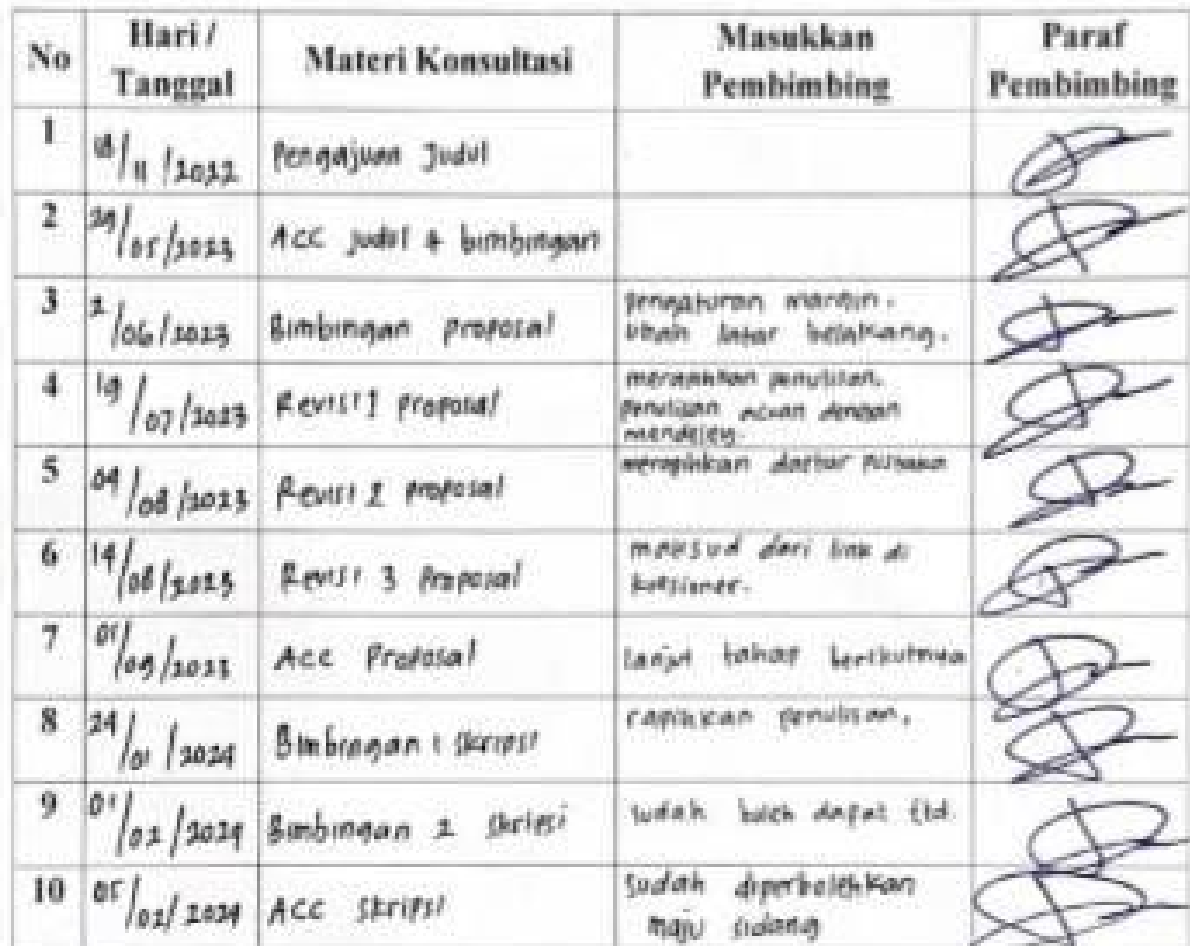 No Hari / Tanggal Materi Konsultasi Masukkan Pembimbing Paraf Pembimbing
1 18/11/2022 Pengajuan Judul
2 /05/2023 Acc judul & bimbingan
3 2/06/2023 Bimbingan proposal pengaturan margin.
ubah latar belakang.
4 19/07/2023 Revisi 1 proposal merapihkan penulisan.
penulisan acuan dengan
mendeley.
5 04/08/2023 Revisi 2 proposal merapihkan daftar pustaka
6 14/08/2023 Revisi 3 proposal maksud dari link di
kuesioner.
7 01/09/2023 Acc Proposal lanjut tahap berikutnya
8 24/01/2024 Bimbingan 1 skripsi rapihkan penulisan.
9 01/02/2024 Bimbingan 2 skripsi sudah boleh dapat ttd.
10 05/02/2024 Acc skripsi sudah diperbolehkan
maju sidang